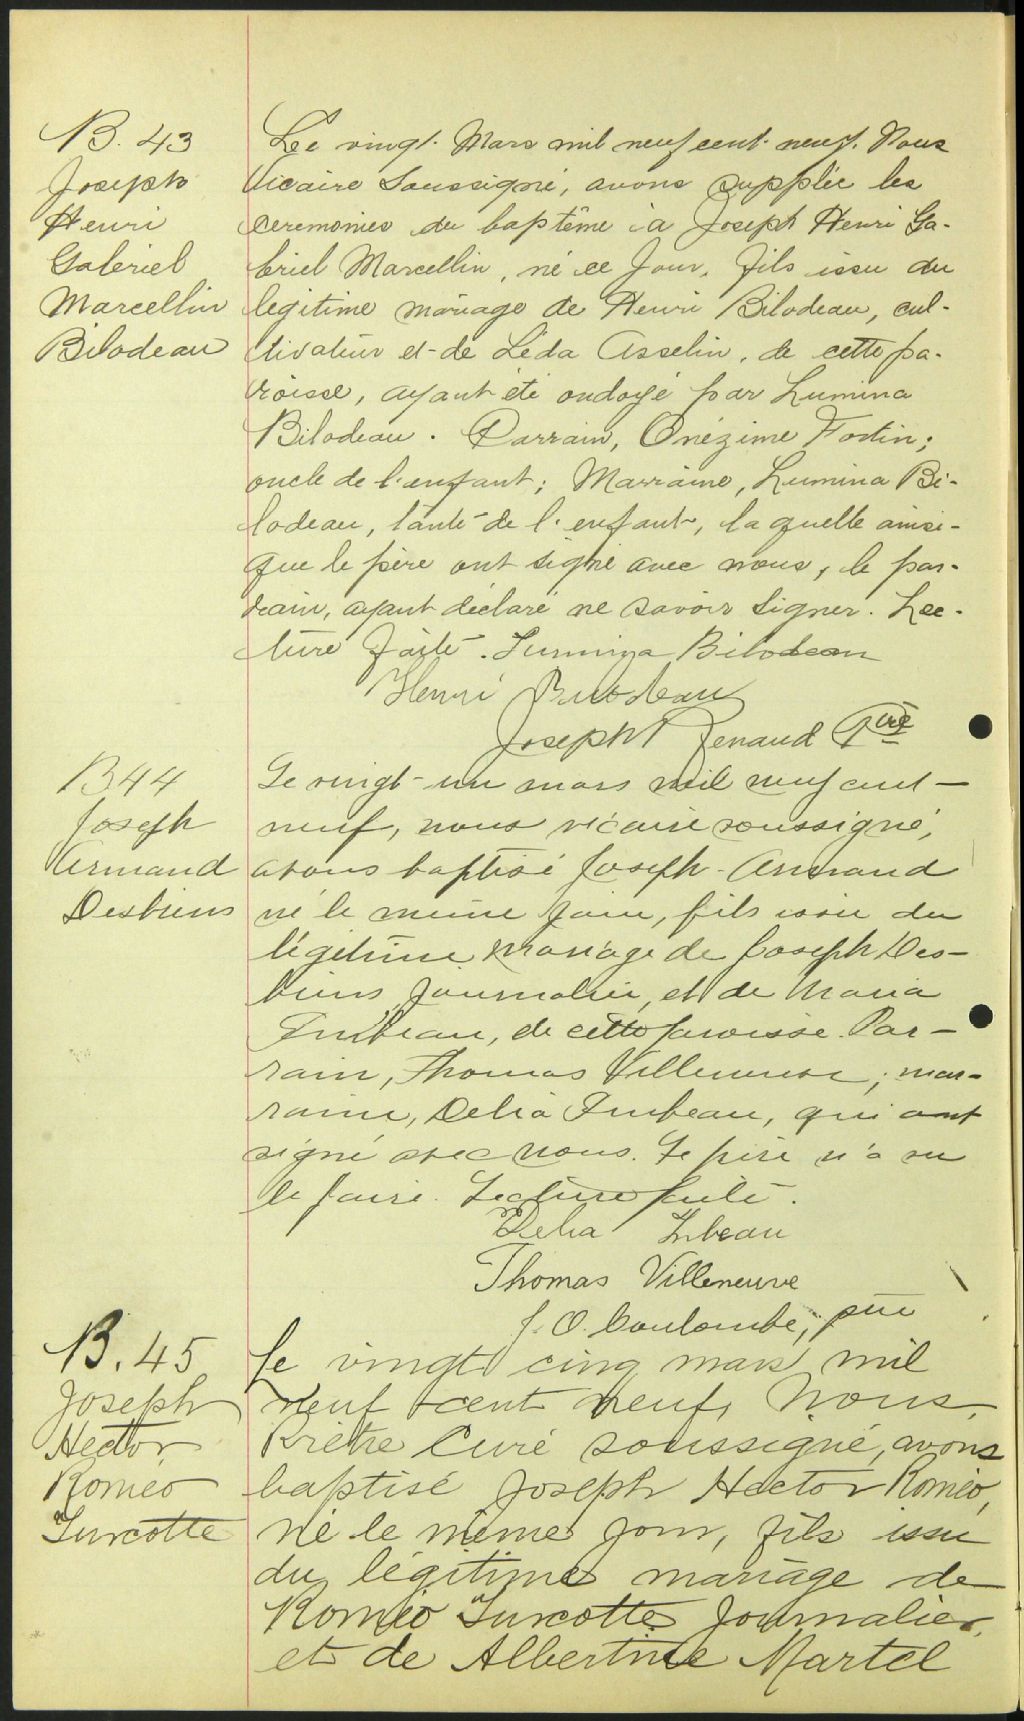 B. 43
Joseph
Henri
Gabriel
Marcellin
Bilodeau
Le vingt Mars mil neuf cent neuf. Nous
Vicaire Soussigné, avons supplée les
ceremonies du baptême à Joseph Henri Ga-
briel Marcellin, né ce jour, fils issu du
legitime mariage de Henri Bilodeau, cul-
tivateur et de Léda Asselin, de cette pa-
roisse, ayant été ondoyé par Lumina
Bilodeau. Parrain, Onézime Fortin;
oncle de l'enfant; Marraine, Lumina Bi-
lodeau, tante de l'enfant, laquelle ainsi-
que le père ont signé avec nous, le par-
rain, ayant déclaré ne savoir signer. Lec-
ture faite. Lumina Bilodeau
Henri Bilodeau
Joseph Renaud Ptre
B 44
Joseph
Armand
Desbiens
Le vingt-un mars mil neuf cent-
neuf, nous vicaire soussigné,
avons baptisé Joseph-Armand
né le même jour, fils issu du
légitime mariage de Joseph Des-
biens, journalier, et de Maria
Imbeau, de cette paroisse. Par-
rain, Thomas Villeneuve; mar-
raine, Delia Imbeau, qui ont
signé avec nous. Le père n'a su
le faire. Lecture faite.
Delia Imbeau
Thomas Villeneuve
J. O. Coulombe, ptre
B. 45
Joseph
Hector
Roméo
Turcotte
Le vingt cinq mars mil
neuf cent neuf, Nous,
Prêtre Curé soussigné, avons
baptisé Joseph Hector Roméo,
né le même jour, fils issu
du légitime mariage de
Roméo Turcotte Journalier,
et de Albertine Martel